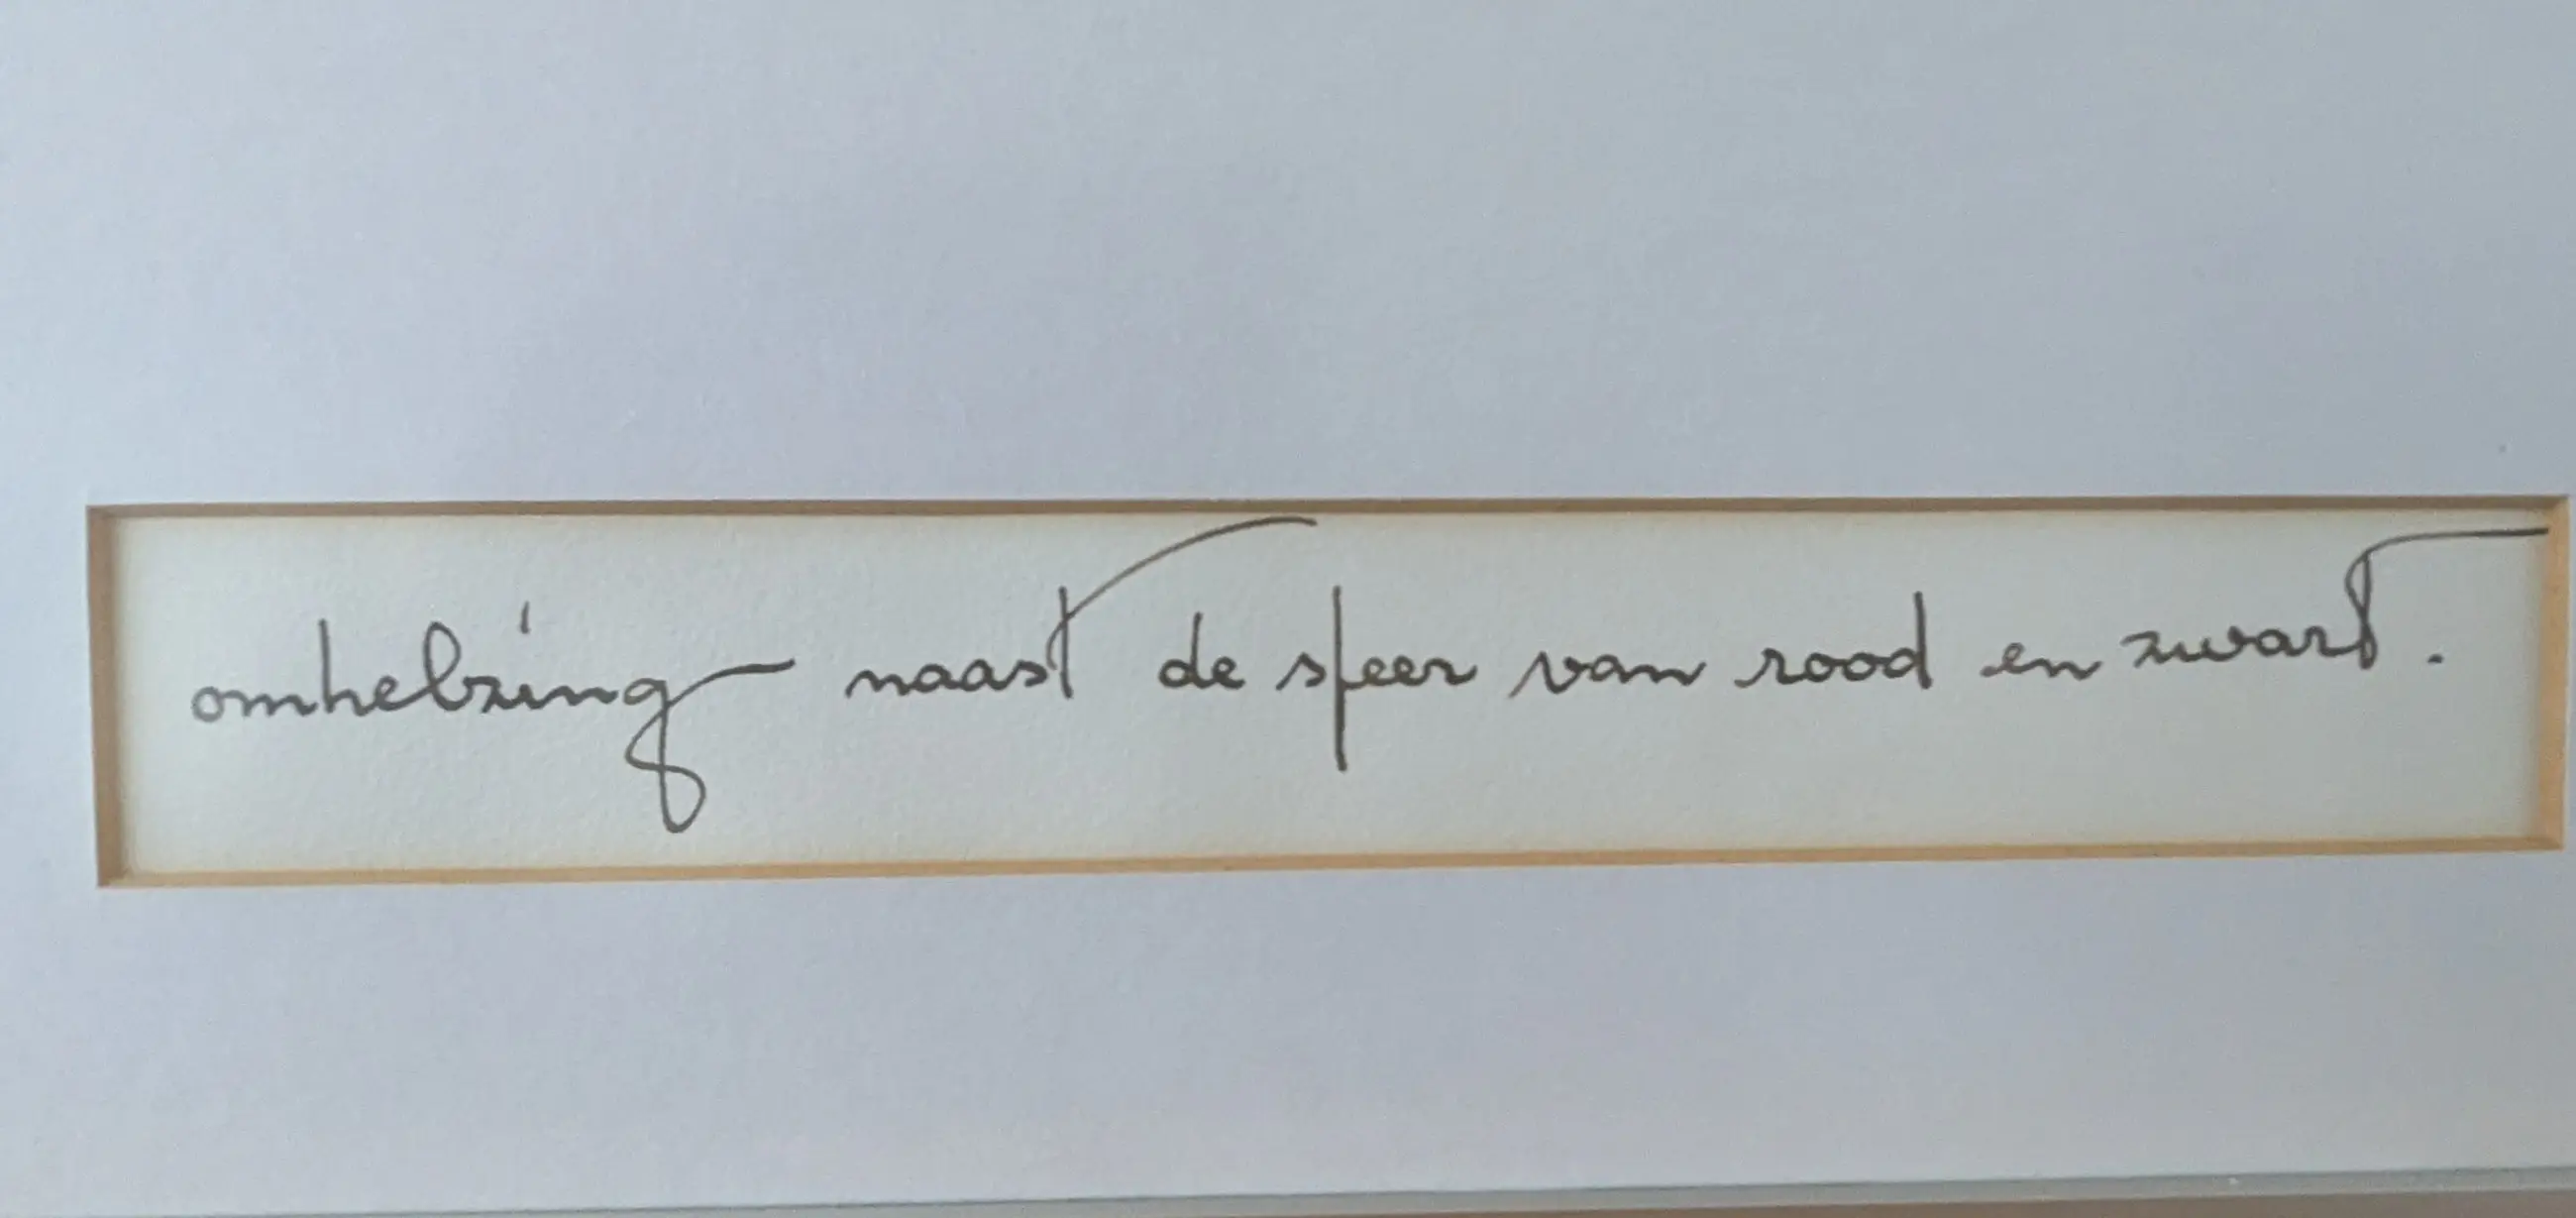 omhelzing naast de speer van rood en zwart.